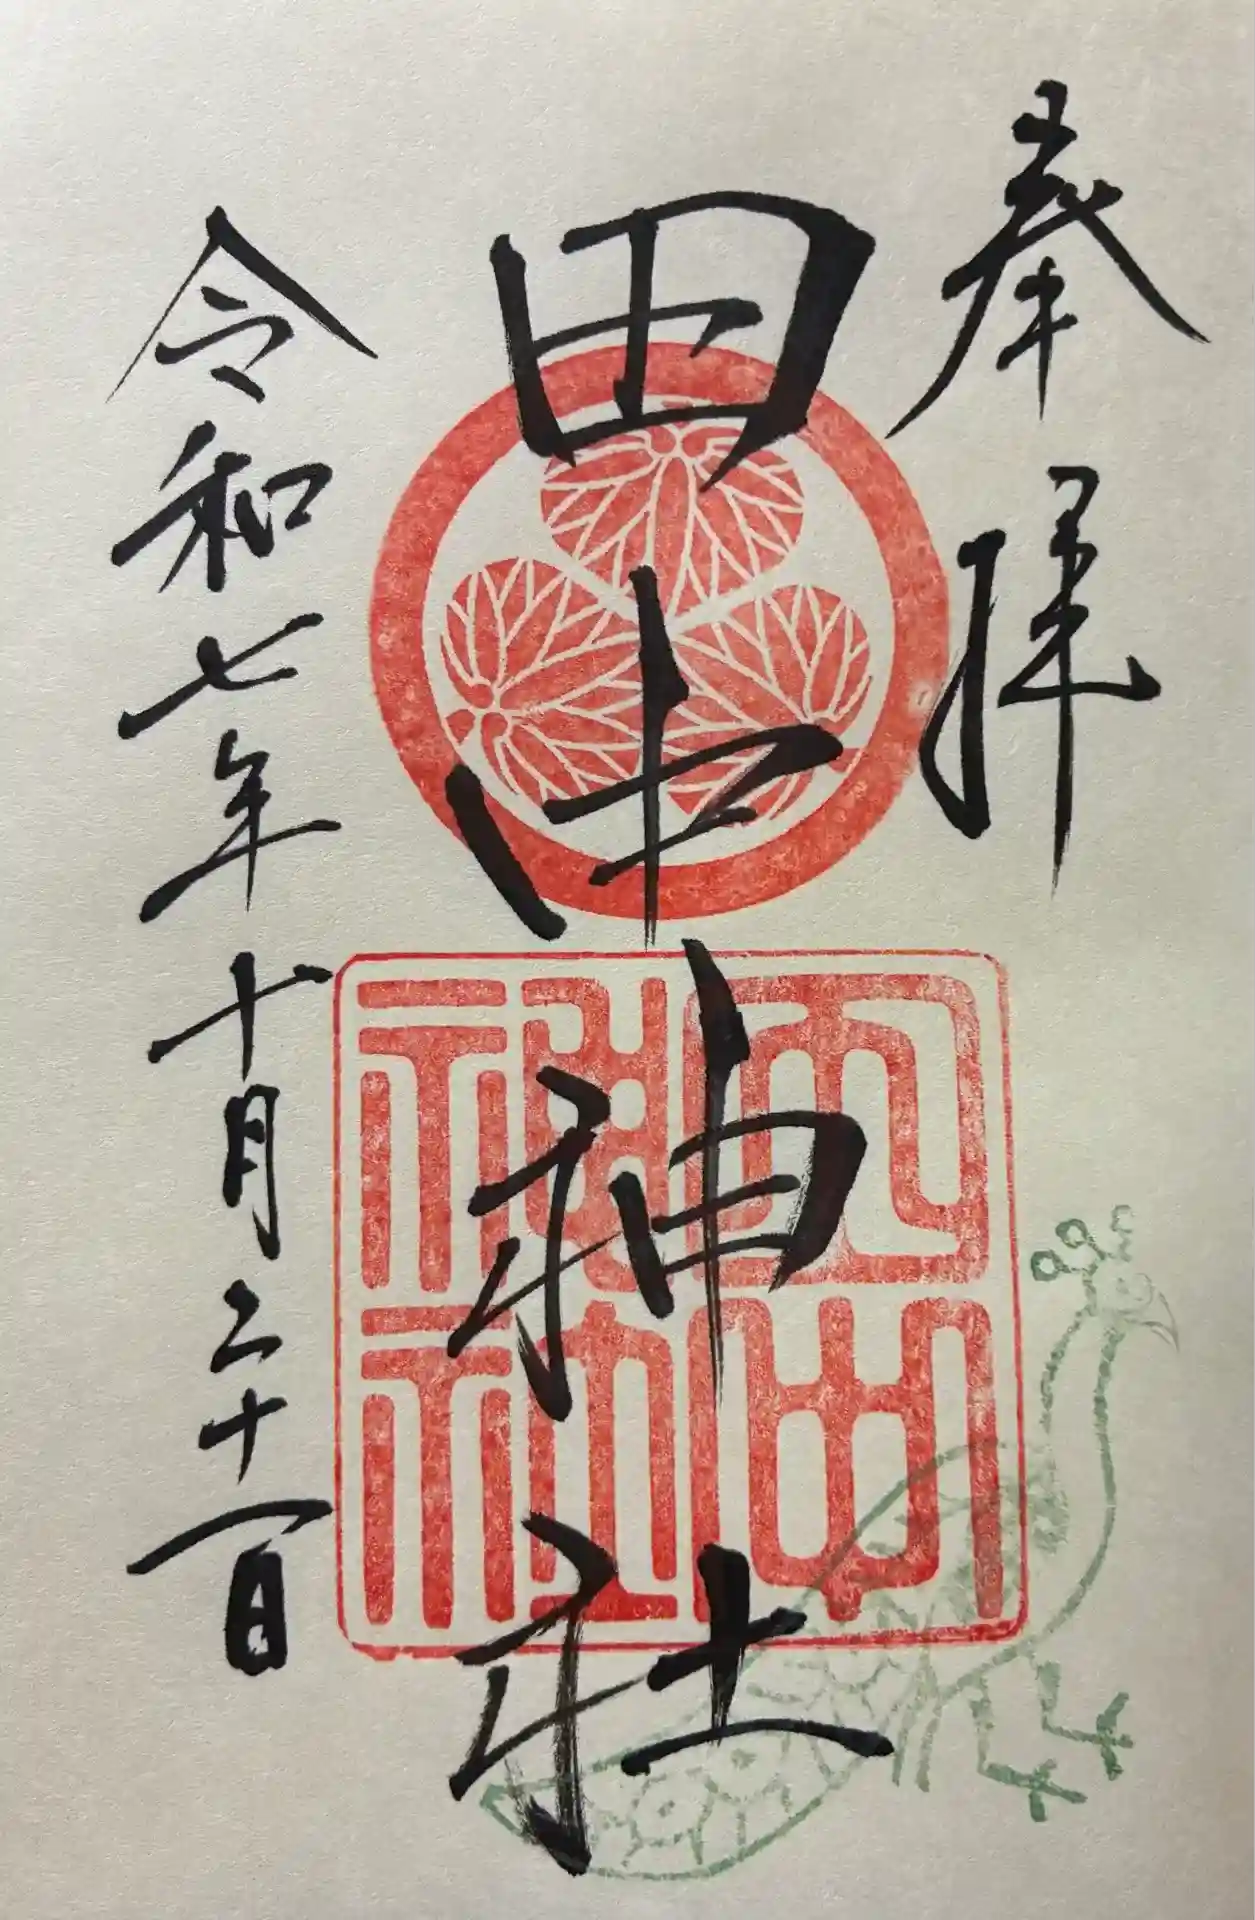 奉拝
田中神社
令和七年十月二十一日